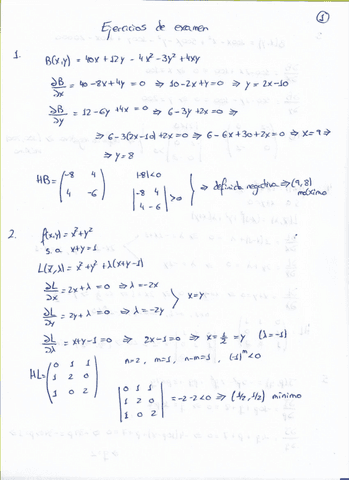 1
Ejercicios de examen
1. B(x,y) = 40x + 12y - 4x² - 3y² + 4xy
∂B/∂x = 40 - 8x + 4y = 0 ⇒ 10 - 2x + y = 0 ⇒ y = 2x - 10
∂B/∂y = 12 - 6y + 4x = 0 ⇒ 6 - 3y + 2x = 0 ⇒
⇒ 6 - 3(2x - 10) + 2x = 0 ⇒ 6 - 6x + 30 + 2x = 0 ⇒ x = 9 ⇒
⇒ y = 8
HB = (-8 4
4 -6)
|-8| < 0
|-8 4
4 -6| > 0
⇒ definida negativa ⇒ (9,8)
máximo
2. f(x,y) = x² + y²
s.a. x + y = 1
L(x,λ) = x² + y² + λ(x + y - 1)
∂L/∂x = 2x + λ = 0 ⇒ λ = -2x
∂L/∂y = 2y + λ = 0 ⇒ λ = -2y
x = y
∂L/∂λ = x + y - 1 = 0 ⇒ 2x - 1 = 0 ⇒ x = 1/2 = y (λ = -1)
HL = (0 1 1
1 2 0
1 0 2)
n = 2, m = 1, n - m = 1, (-1)ᵐ < 0
|0 1 1
1 2 0
1 0 2| = -2 - 2 < 0 ⇒ (1/2, 1/2) mínimo